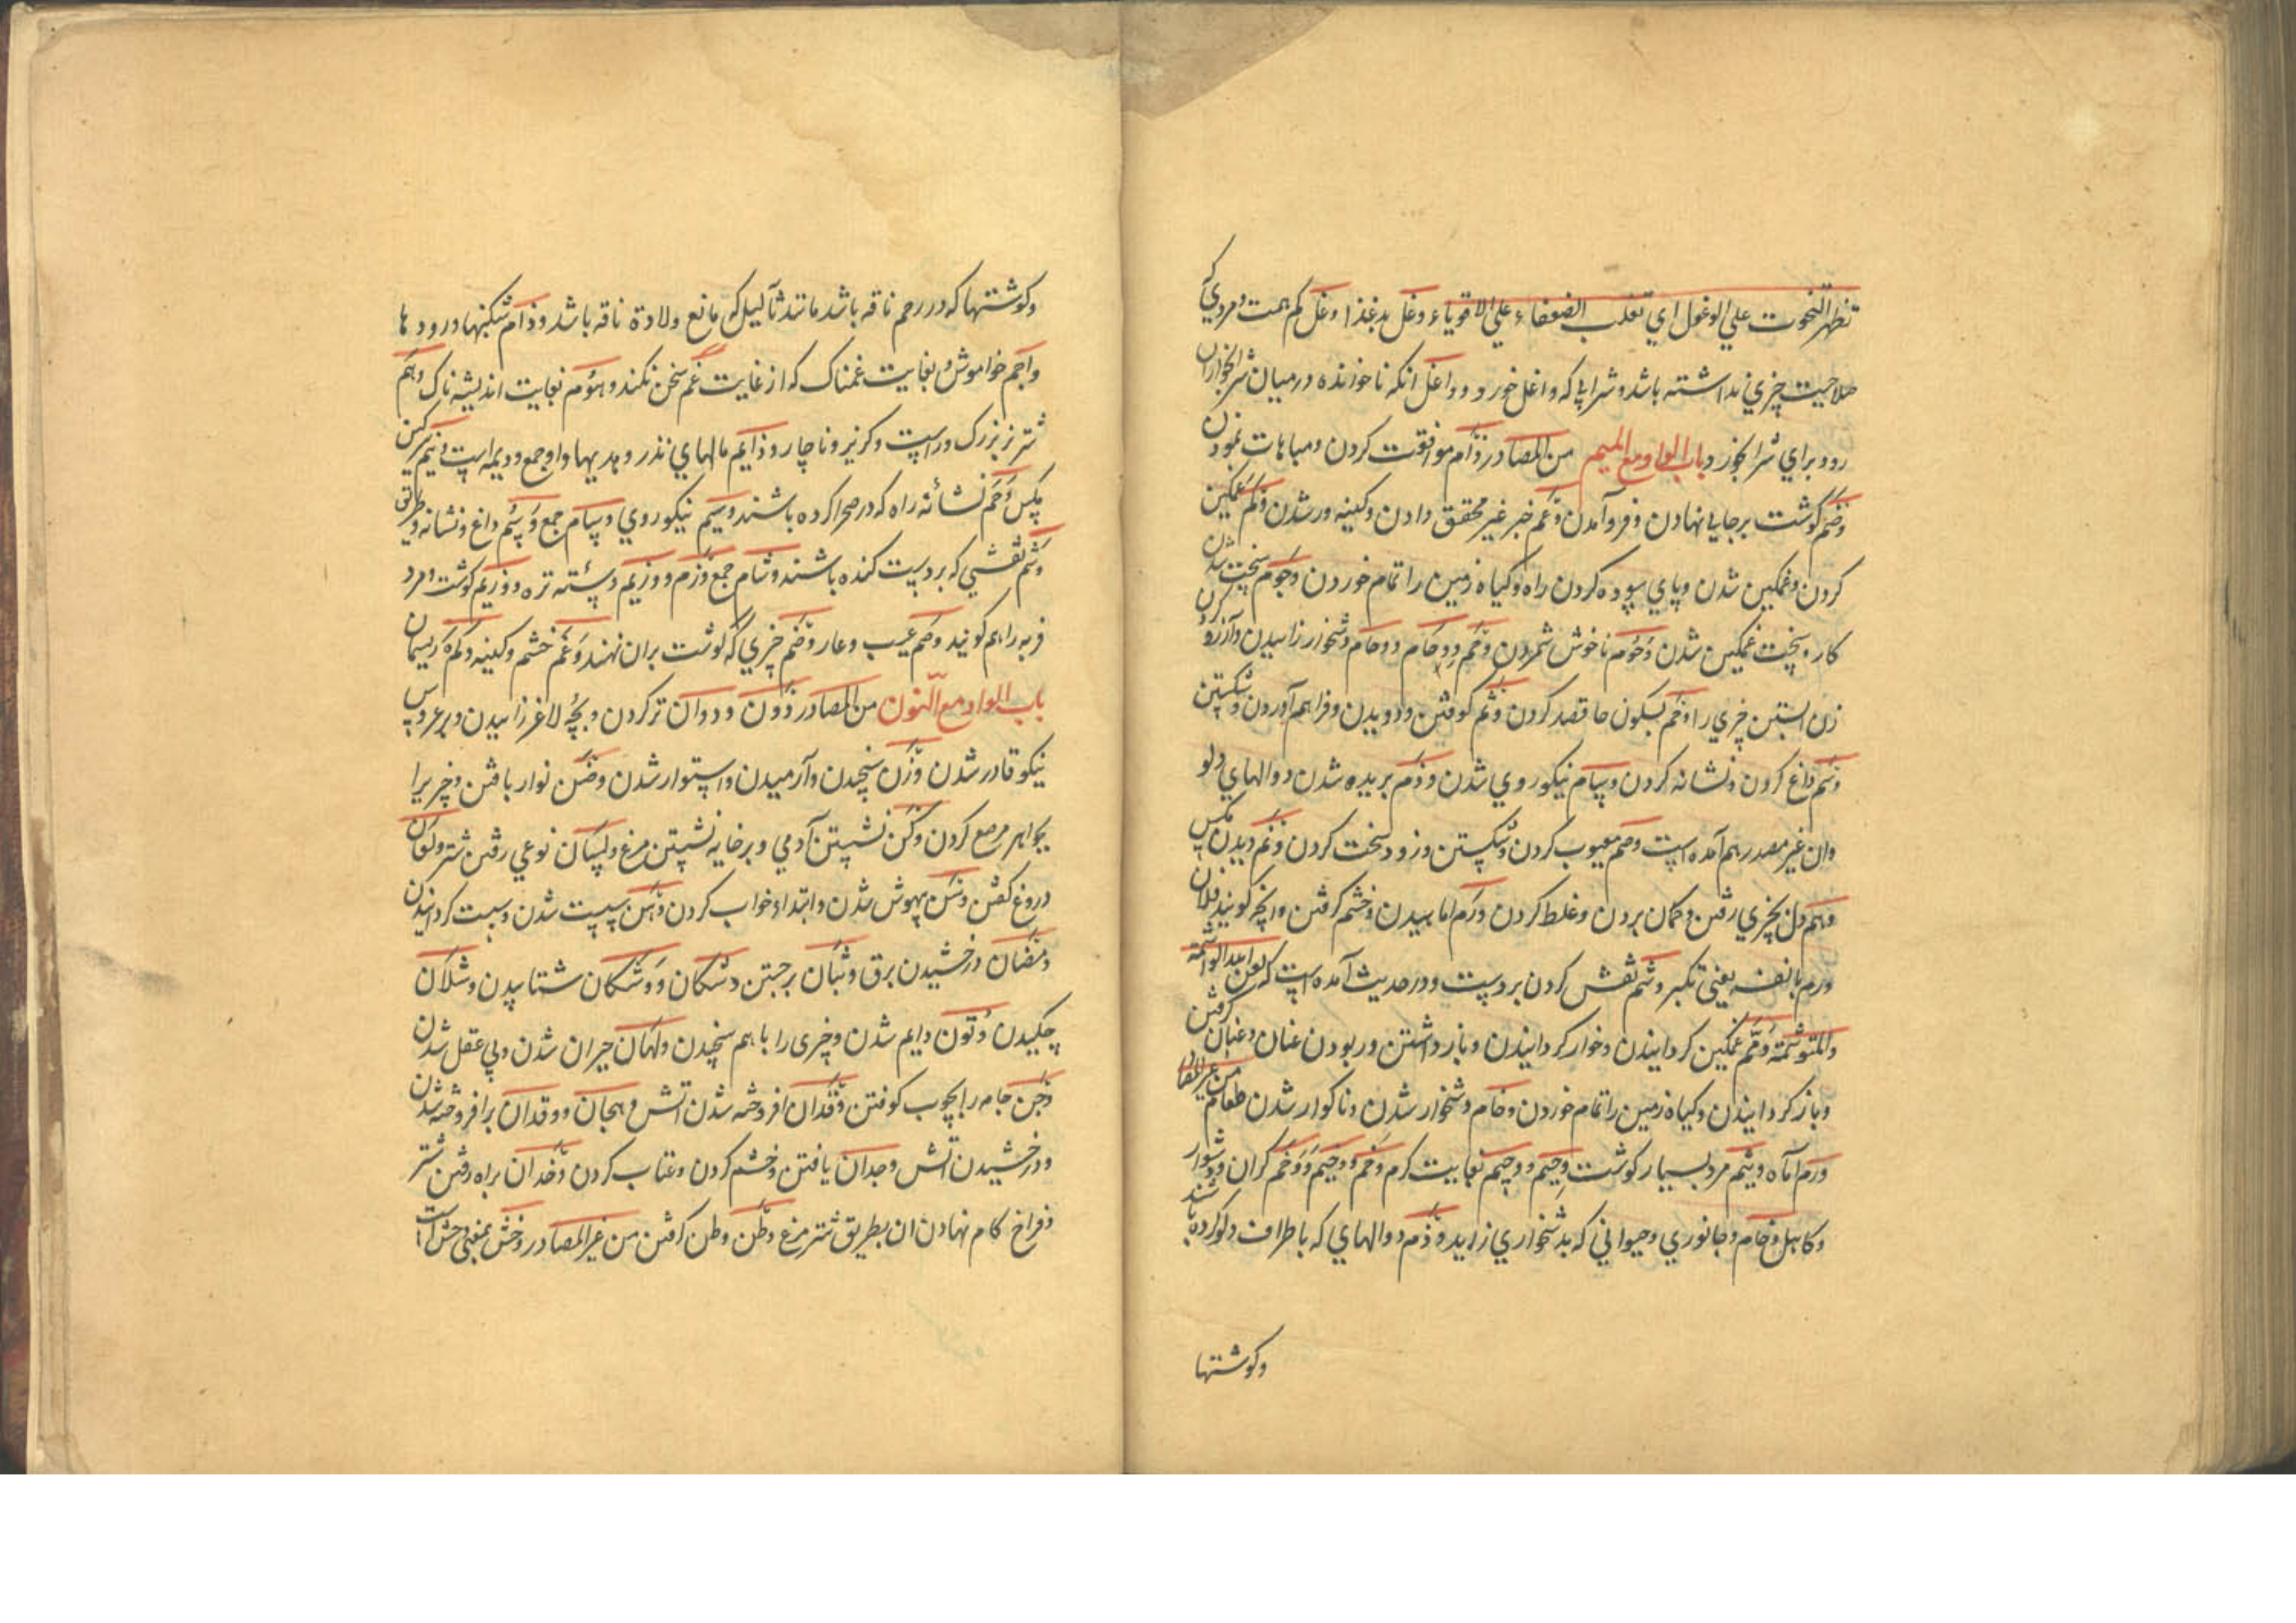 تظهر التحوت علي الوغول اي تغلب الضعفاء علي الاقوياء وغل بد غذا وغل كم همت و مردي كه
صلاحيت چيزي نداشته باشد و شرابي كه واغل خورد و واغل انكه ناخوانده درميان شرابخواران
رود براي شراب خورد باب الواو مع الميم من المصادر وئام موافقت كردن ومباهات نمودن
وضم كوشت برجايي نهادن و فروآمدن وغم خبر غير محقق دادن وكينه ور شدن وكم غمكين
كردن وغمكين شدن وپاي سپوده كردن راه وكياه زمين را تمام خوردن وجوم سخت شدن
كار و سخت غمكين شدن وخوم ناخوش شمردن وحم ووحام ووحام دشخوار زاييدن وآرزو كردن
زن ابستن چيزي را وحم بسكون حا قصد كردن وثم كوفتن ودويدن وفراهم آوردن وشكستن
وسم داغ كردن ونشانه كردن وسام نيكوروي شدن ووذم بريده شدن دوالهاي دلو
وان غير مصدر هم آمده است وصم معيوب كردن وشكستن وزود سخت كردن ونم ريدن مكس
وهم دل بچيزي رفتن وكمان بردن وغلط كردن ورم اماسيدن وخشم كرفتن وانچه كويند فلان
ورم بانفه يعني تكبر وشم نقش كردن بر دست ودر حديث آمده است كه لعن الله الواشمة
والمتوشمة وقم غمكين كردانيدن وخوار كردانيدن وباز داشتن وربودن عنان وعنان كرفتن
وباز كردانيدن وكياه زمين را تمام خوردن وخام دشخوار شدن وناكوار شدن طعام من غير المصا
ورم اماه وشم مرد بسيار كوشت وحيم ووحيم بغايت كرم وخم ووخيم ووخم كران ودشوار
وكاهل وخام وجانوري وحيواني كه بدشخواري زايد وذم دوالهاي كه باطراف دلو كرده باشند
وكوشتها
وكوشتها كه در رحم ناقه باشد مانند ثآليل كه مانع ولادة ناقه باشد ووذام شكنبها ورودها
واجم خواموش و بغايت غمناك كه از غايت غم سخن نكند وهوم بغايت انديشه ناك وهم
شتر بزرك وراست وكزير وناچار ووذايم مالهاي نذر وهديها واو جمع ووديمه است ونيم سركين
مكس وخم نشانه راه كه در صحرا كرده باشند وسيم نيكوروي وسام جمع وسم داغ ونشانه وطريق
وشم نقشي كه بر دست كنده باشند وشام جمع وزم ووزيم دسته تره ووزيم كوشت ومرد
فربه را هم كويند وصم عيب وعار وضم چيزي كه كوشت بران نهند وغم خشم وكينه ولمه ريسمان
باب الواو مع النون من المصادر وون وودان تر كردن وبچه لاغر زاييدن وبر عروس
نيكو قادر شدن وزن سنجيدن وآرميدن واستوار شدن وضن نوار بافتن وچيزيرا
بجواهر مرصع كردن وكن نشستن آدمي وبرخايه نشستن مرغ ولسان نوعي رفتن شتر ولعان
دروغ كفتن وسن بيهوش شدن وابتداء خواب كردن وهن سست شدن وسست كردانيدن
ومضان درخشيدن برق وثبان برجستن وشكان ووشكان شتابيدن وشلان
چكيدن وتون دايم شدن وچيزي را با هم سنجيدن ولهان حيران شدن وبي عقل شدن
وجن جامه را بچوب كوفتن وقدان افروخته شدن اتش وهجان ووقدان برافروخته شدن
ودرخشيدن اتش وجدان يافتن وخشم كردن وعتاب كردن وخدان براه رفتن شتر
وفراخ كام نهادن ان بطريق شتر مرغ وطن وطن كرفتن من غير المصادر وخش بمعني وحش است